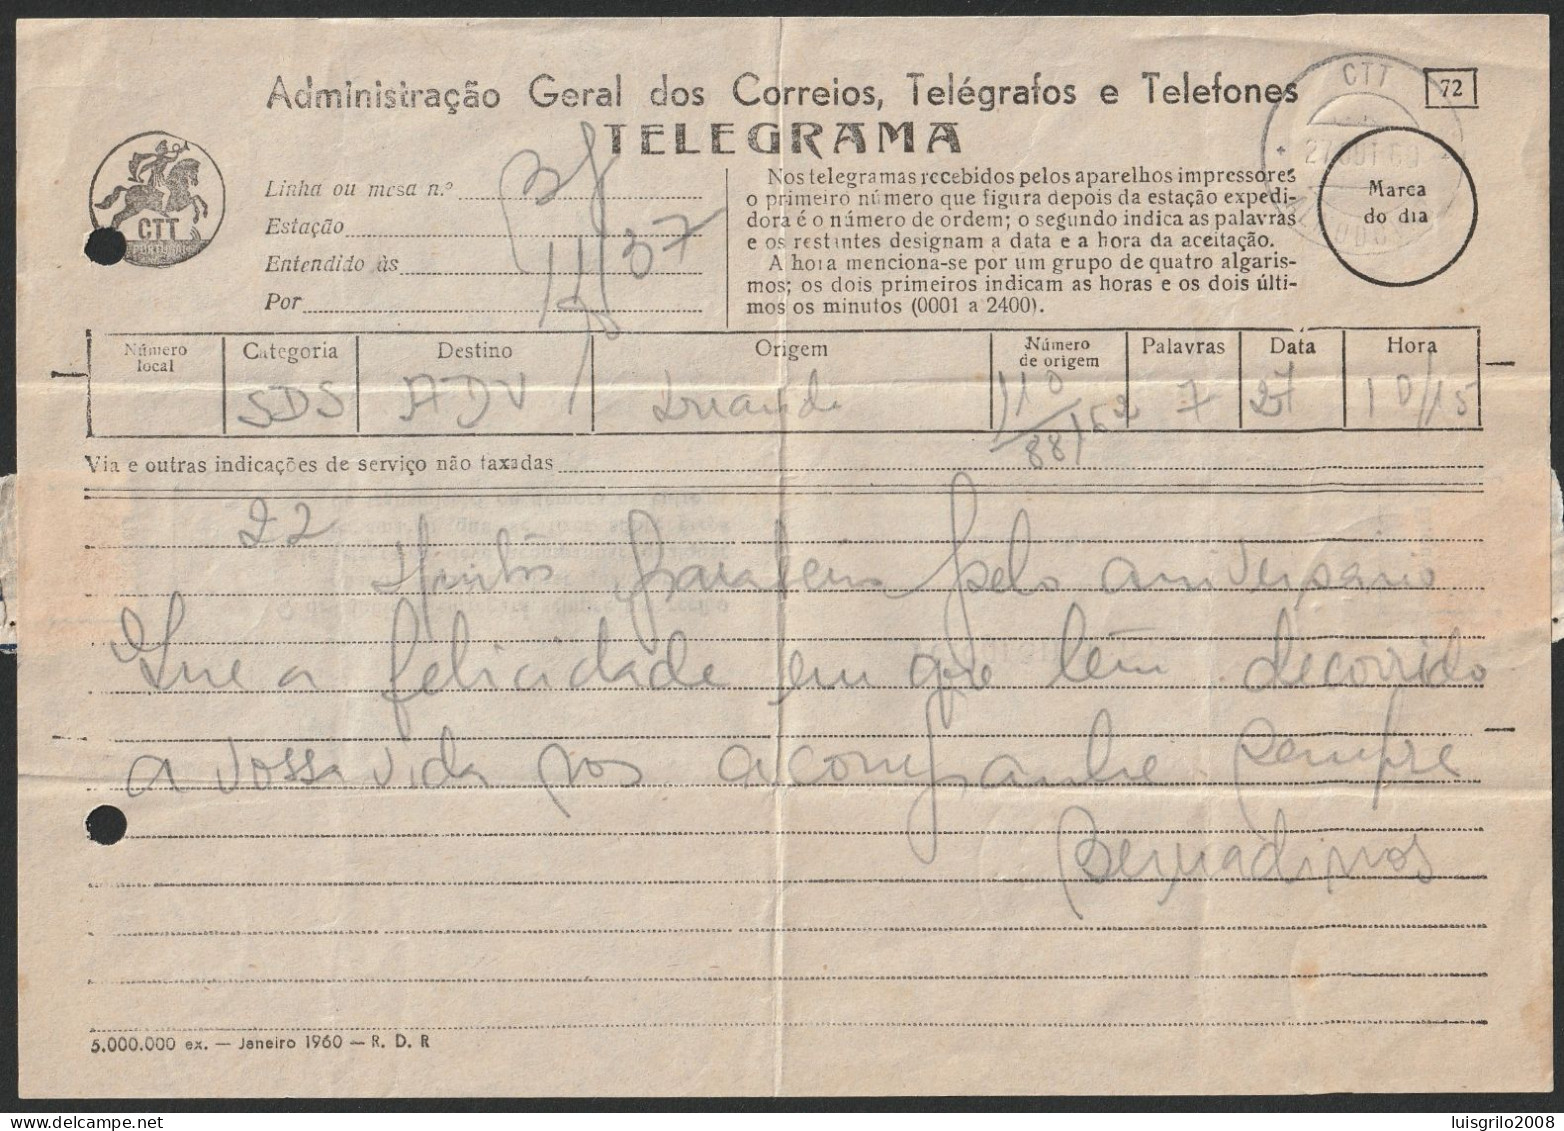 Administração Geral dos Correios, Telégrafos e Telefones
TELEGRAMA
72
CTT
27 OUT 60
Marca
do dia
CTT
PORTUGAL
Linha ou mesa n.º
Estação
Entendido às 11/37
Por
Nos telegramas recebidos pelos aparelhos impressores
o primeiro número que figura depois da estação expedi-
dora é o número de ordem; o segundo indica as palavras
e os restantes designam a data e a hora da aceitação.
A hora menciona-se por um grupo de quatro algaris-
mos; os dois primeiros indicam as horas e os dois últi-
mos os minutos (0001 a 2400).
Número local Categoria Destino Origem Número de origem Palavras Data Hora
SDS ADV 110 7 27 10/15
88/52
Via e outras indicações de serviço não taxadas
22
Muitos parabens pelo aniversario
Que a felicidade em que têm decorrido
a vossa vida vos acompanhe sempre
Bernadinos
5.000.000 ex. — Janeiro 1960 — R. D. R
luisgrilo2008